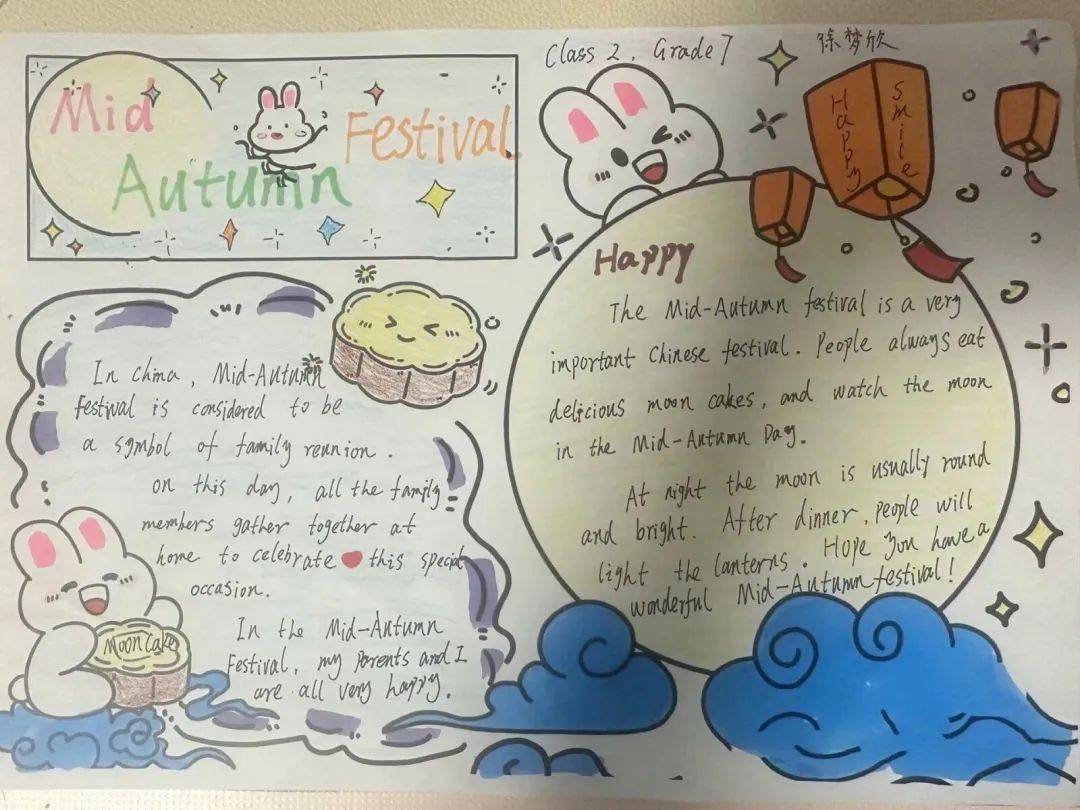 Class 2, Grade 7
徐梦欣
Mid
Autumn
Festival
Happy
Smile
In China, Mid-Autumn
Festival is considered to be
a symbol of family reunion.
on this day, all the family
members gather together at
home to celebrate this special
occasion.
In the Mid-Autumn
Festival, my parents and I
are all very happy.
Moon Cake
Happy
The Mid-Autumn festival is a very
important Chinese festival. People always eat
delicious moon cakes, and watch the moon
in the Mid-Autumn Day.
At night the moon is usually round
and bright. After dinner, people will
light the lanterns. Hope you have a
wonderful Mid-Autumn festival!